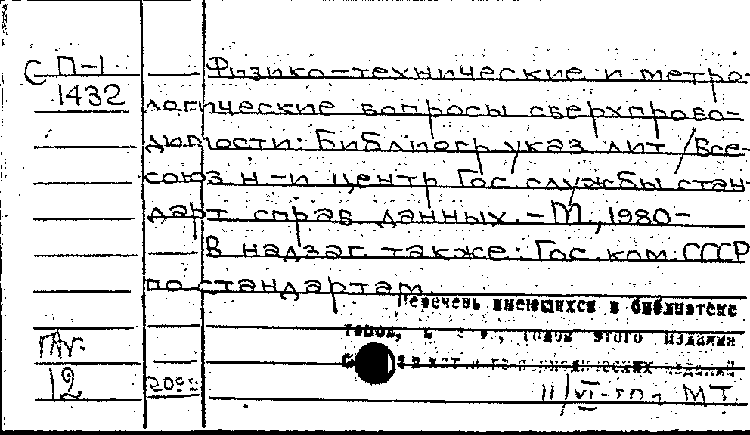 С П-1
1432
Физико-технические и метро-
логические вопросы сверхпрово-
димости: Библиогр указ лит / Все-
союз н-и центр Гос службы стан-
дарт справ данных. - М., 1980-
В надзаг. также: Гос. ком. СССР
по стандартам
Перечень имеющихся в библиотеке
томов, этого издания
12
209
МТ